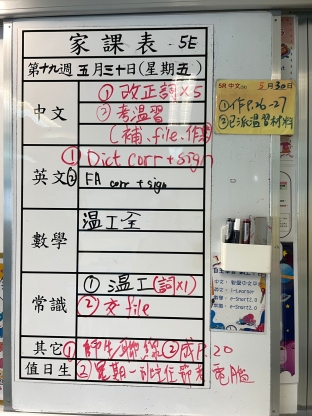 家課表 - 5E
第十九週 五月三十日(星期五)
中文
① 改正詞x5
② 考溫習
(補、file、作業)
英文
① Dict corr + sign
② FA corr + sign
數學
溫工全
常識
① 溫工(詞x1)
② 交 file
其它
① 師生聯絡 ② 成P.20
值日生
5R 中文 5月30日
① 作P.26-27
② 已派溫習材料